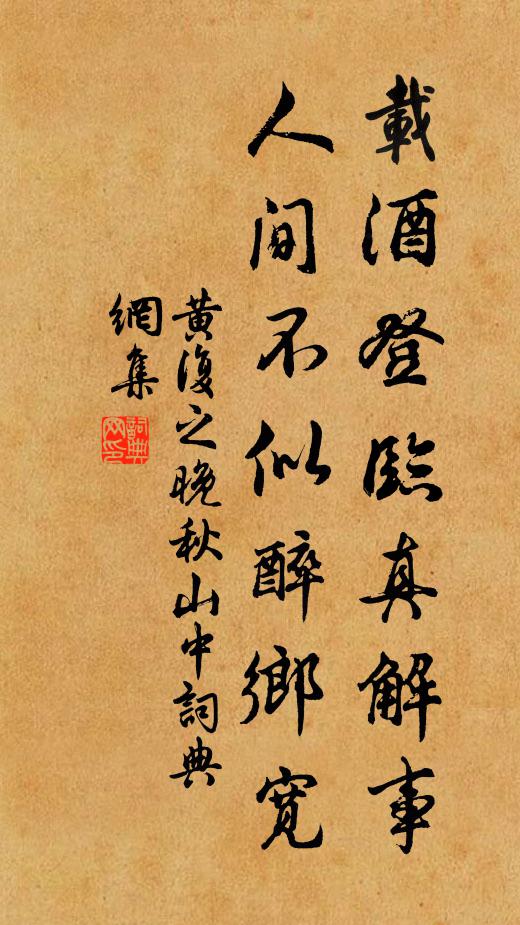 載酒登臨真解事
人間不似醉鄉寬
黃復之晚秋山中詞典
網集
詞典
网印